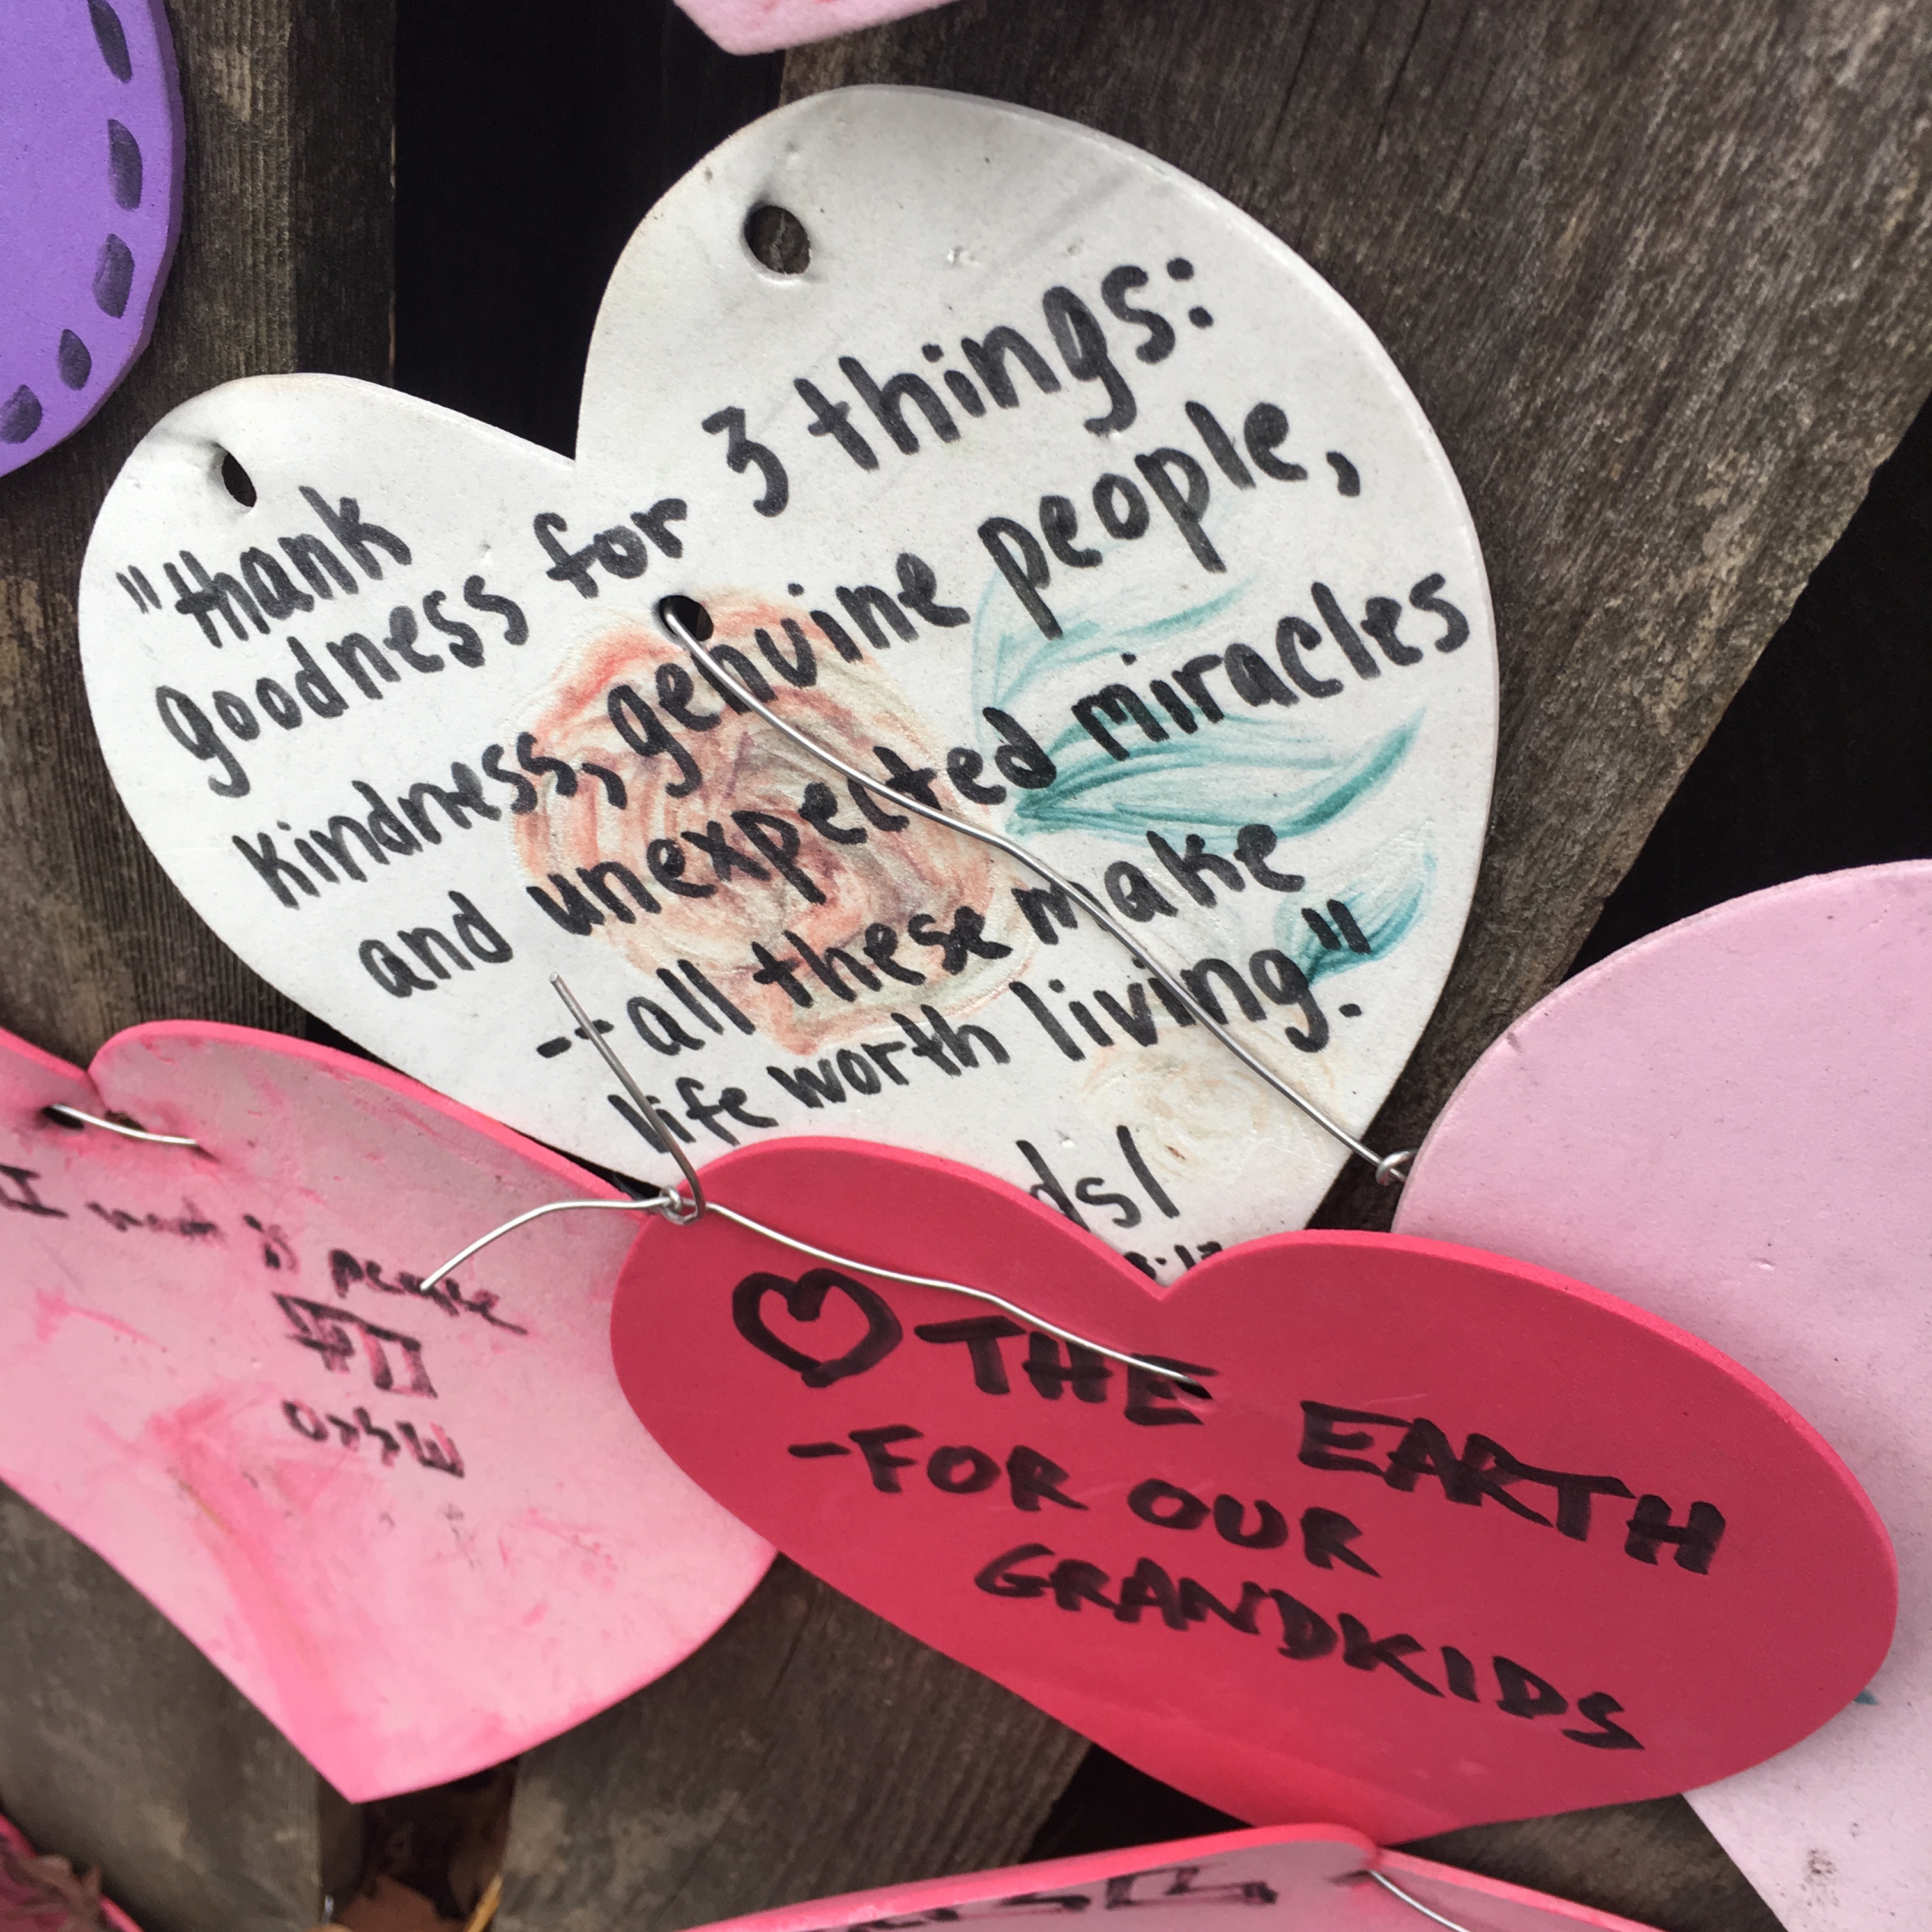 "thank
goodness for 3 things:
kindness, genuine people,
and unexpected miracles
--all these make
life worth living."
ds/
I
peace
♡ THE EARTH
-FOR OUR
GRANDKIDS